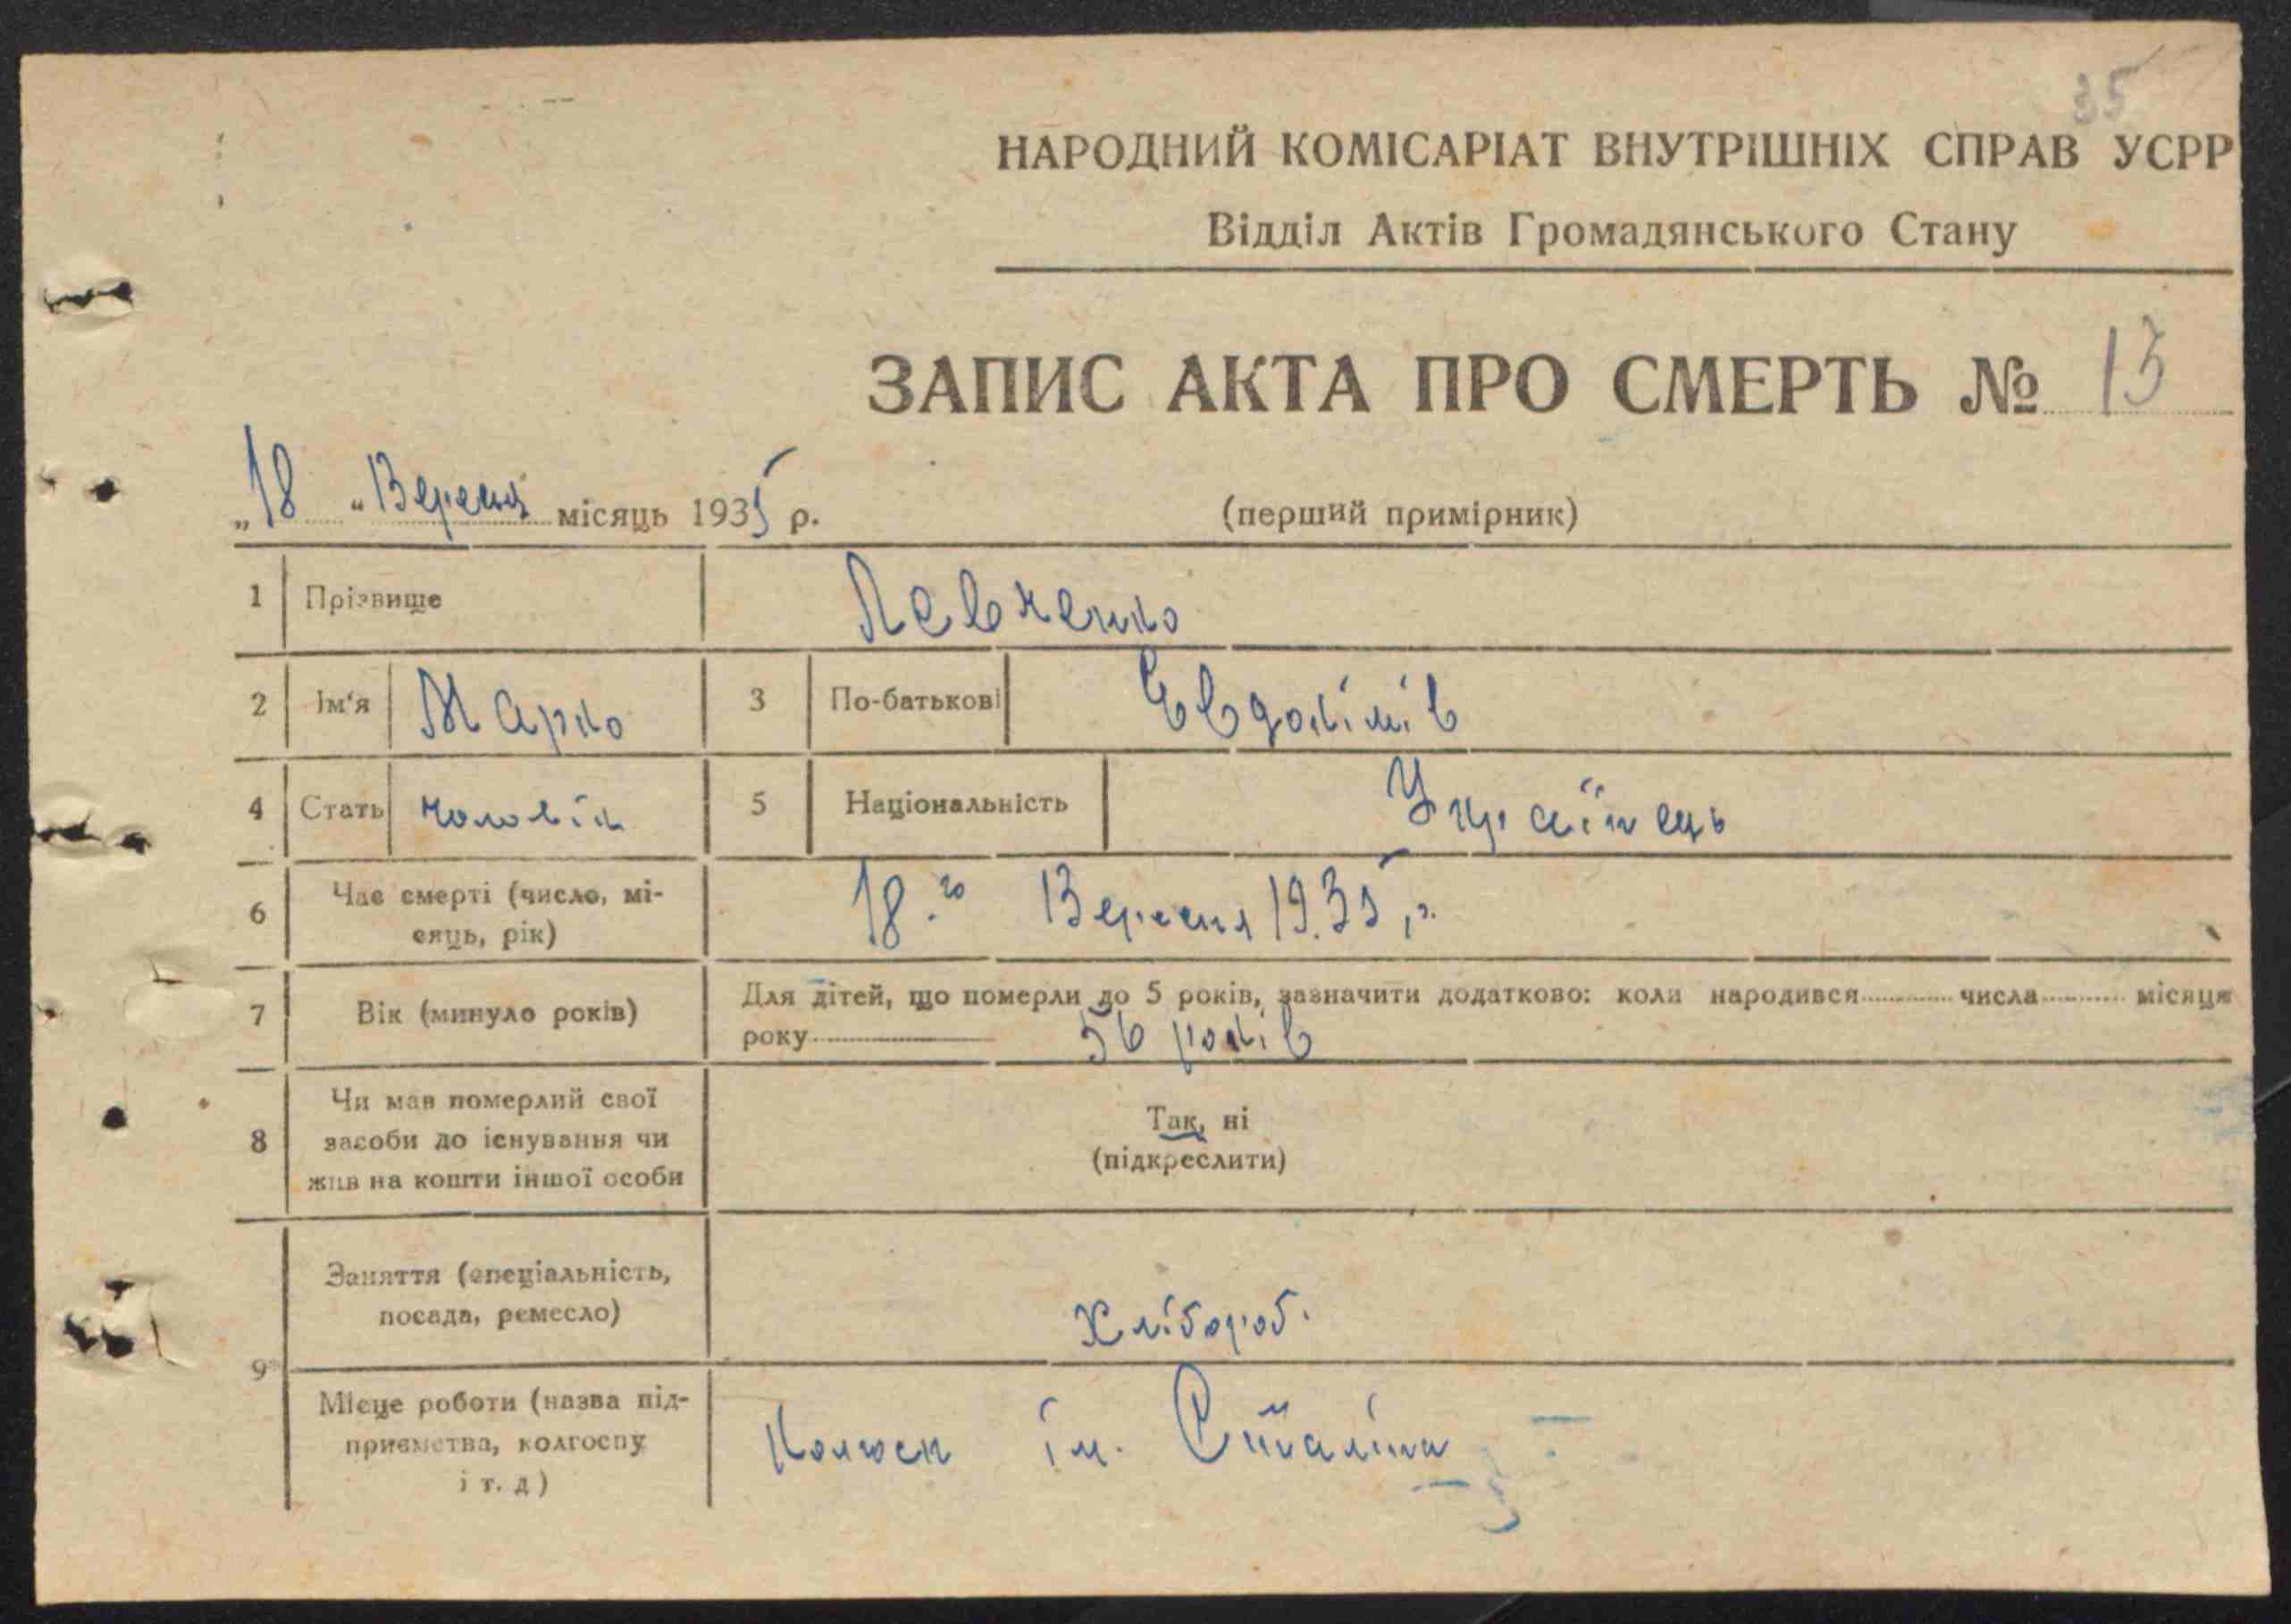 35
НАРОДНИЙ КОМІСАРІАТ ВНУТРІШНІХ СПРАВ УСРР
Відділ Актів Громадянського Стану
ЗАПИС АКТА ПРО СМЕРТЬ № 13
„18“ Вересня місяць 1935 р. (перший примірник)
1 Прізвище Левченко
2 Ім'я Марко 3 По-батькові Євдокімів
4 Стать чоловік 5 Національність Українець
6 Час смерті (число, мі-
сяць, рік) 18.го Вересня 1935 р.
7 Вік (минуло років) Для дітей, що померли до 5 років, зазначити додатково: коли народився числа місяця
року 56 років
8 Чи мав померлий свої
засоби до існування чи
жив на кошти іншої особи
Так, ні
(підкреслити)
9 Заняття (спеціальність,
посада, ремесло) Хлібороб.
Місце роботи (назва під-
приємства, колгоспу
і т. д) Колгосп ім. Сталіна